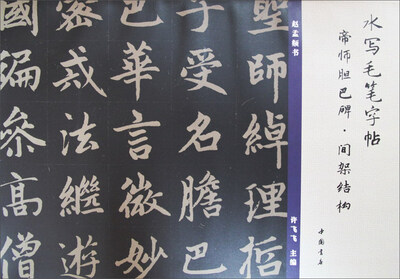 水写毛笔字帖
帝师胆巴碑·间架结构
中国书店
赵孟頫书
许飞飞 主编
聖師綽理哲
子受名膽巴
巴華言微妙
密戒法繼遊
國徧參高僧